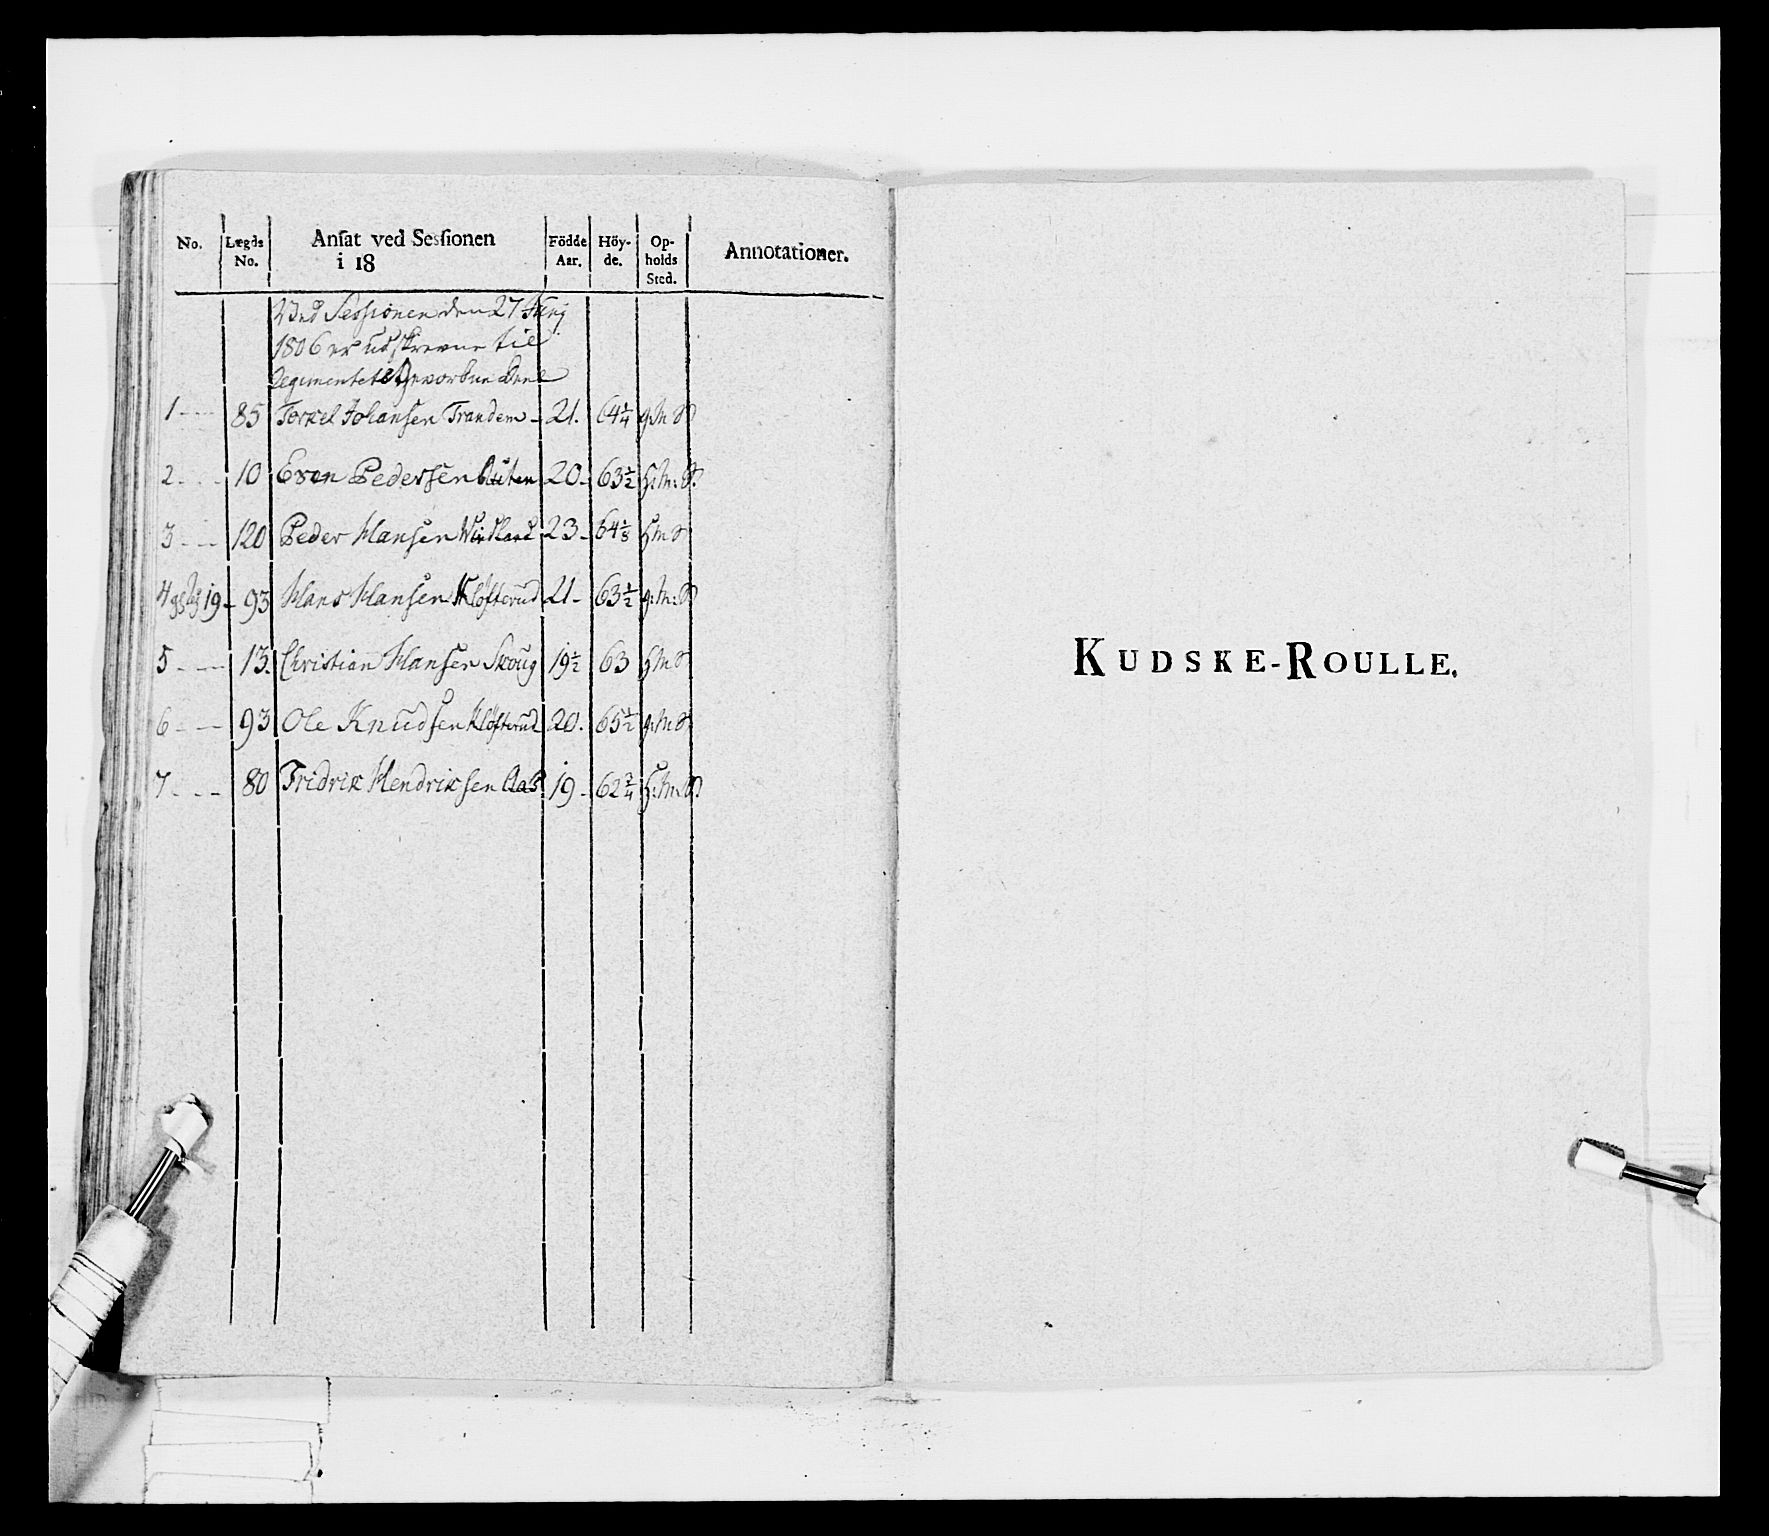 No. Lægds No. Ansat ved Sessionen i 18 Födde Aar. Höyde. Opholds Sted. Annotationer.
Ved Sessionen den 27 Junj
1806 er udskrevne til
Regimentets Gevorbne Deel
1 - - 85 Torkel Johansen Trandem - 21. 64 1/4 g M S
2 - - 10 Even Pedersen 20 - 63 1/2 H: M: S.
3 - - 120 Peder Hansen 23 - 64 H M S
4 19 - 93 Hans Hansen Klöfterud 21 - 63 1/2 g: M: S
5 - - 13. Christian Hansen Skoug 19 1/2 63 H M S
6 - - 93 Ole Knudsen Klöfterud 20. 65 1/2 g: M S
7 - - 80 Fridrik Hendriksen Aas 19 - 62 3/4 H: M: S
KUDSKE-ROULLE.